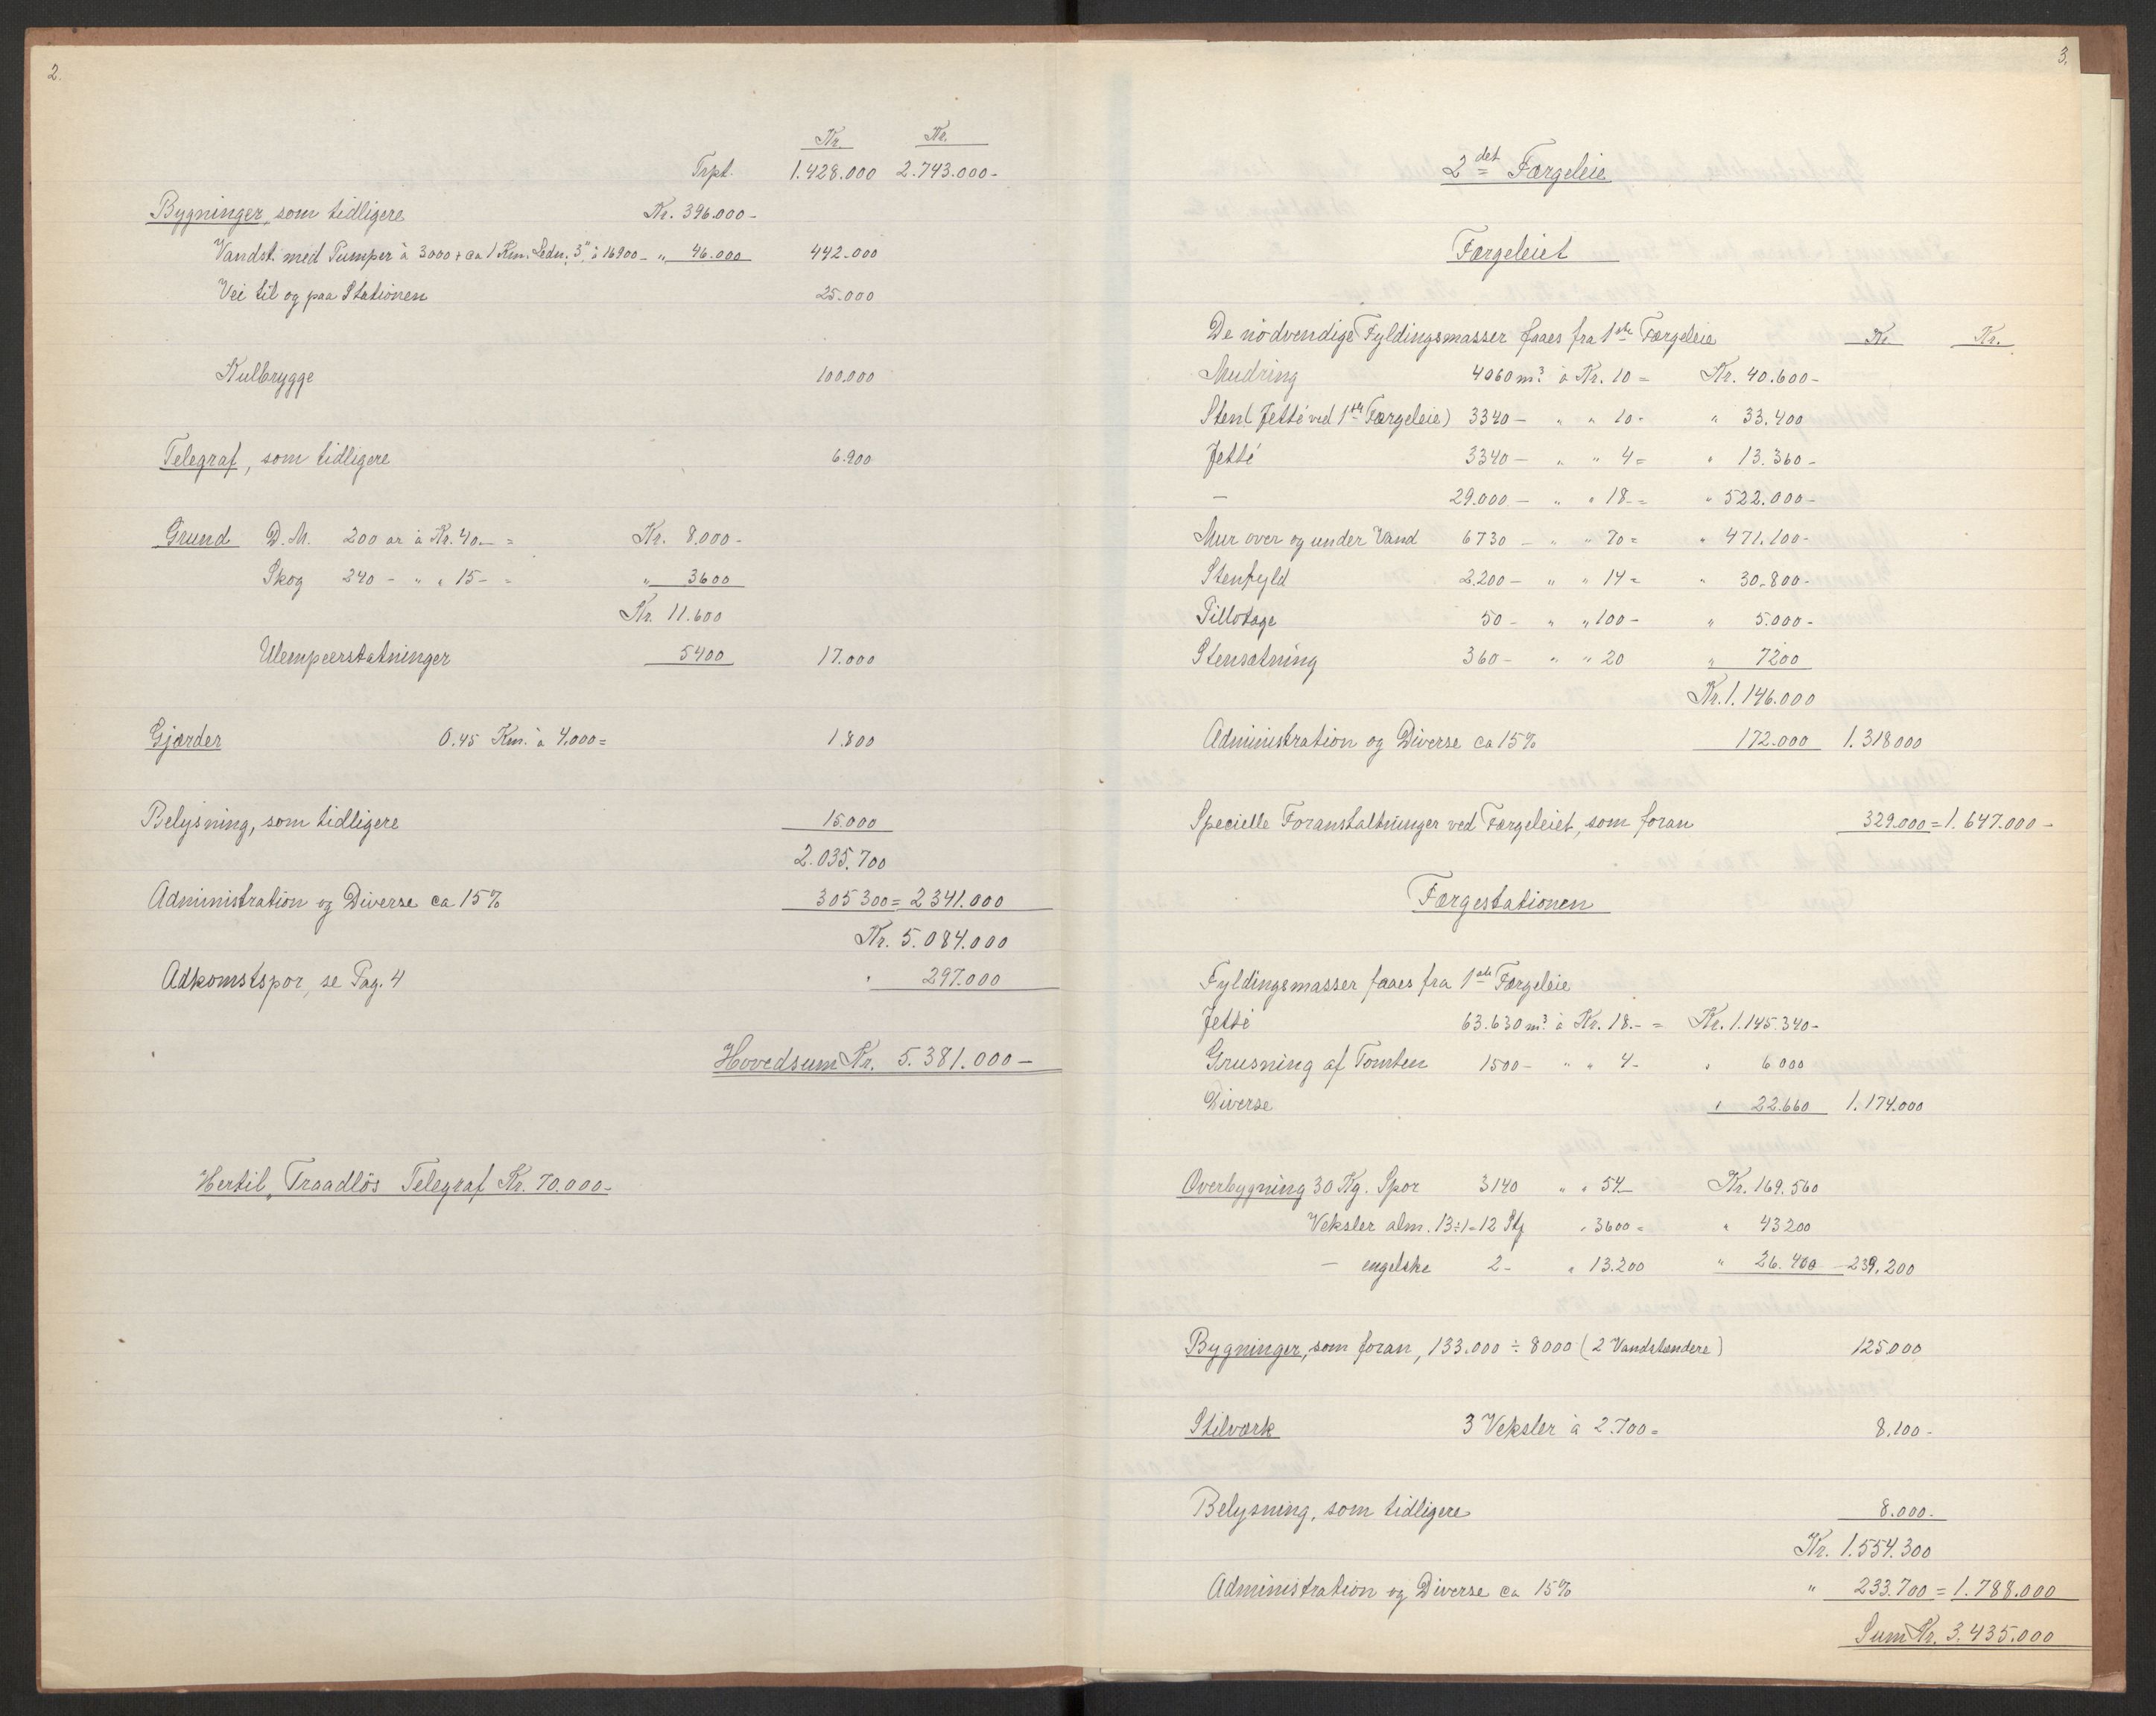 2.
Kr. Kr.
Trpt. 1.428.000 2.743.000-
Bygninger, som tidligere Kr. 396.000-
Vandst. med Pumper à 3000 + ca 1 Km. Ledn. 3" à 16900- " 46.000 442.000
Vei til og paa Stationen 25.000
Kulbrygge 100.000
Telegraf, som tidligere 6.900
Grund D.M. 200 ar à Kr. 40.- = Kr. 8.000-
Skog 240 - " " 15- = " 3600
Kr. 11.600
Ulempeerstatninger 5400 17.000
Gjærder 0,45 Km. à 4.000= 1.800
Belysning, som tidligere 15.000
2.035.700
Administration og Diverse ca 15% 305300= 2341.000
Kr. 5.084.000
Adkomstspor, se Pag. 4 " 297.000
Hovedsum Kr. 5.381.000-
Hertil, Traadløs Telegraf Kr. 70.000-
3.
2det Færgeleie
Færgeleiet
De nødvendige Fyldingsmasser faaes fra 1ste Færgeleie Kr. Kr.
Mudring 4060 m³ à Kr. 10 = Kr. 40.600-
Sten (Jetté ved 1ste Færgeleie) 3340- " " 10- " 33.400
Jetté 3340- " " 4= " 13.360-
- 29.000- " " 18-= " 522.000-
Mur over og under Vand 6730- " " 70= " 471.100-
Stenfyld 2.200- " " 14= " 30.800-
Pillotage 50- " " 100- " 5.000-
Stensætning 360- " " 20 " 7200
Kr. 1.146.000
Administration og Diverse ca 15% 172.000 1.318000
Specielle Foranstaltninger ved Færgeleiet, som foran 329.000=1.647.000-
Færgestationen
Fyldingsmasser faaes fra 1ste Færgeleie
Jetté 63.630 m³ à Kr. 18.- = Kr. 1.145.340-
Grusning af Tomten 1500- " " 4- " 6.000
Diverse " 22.660 1.174.000
Overbygning 30 Kg. Spor 3140 " " 54- Kr. 169.560
Veksler alm. 13÷1=12 Stg " 3600= " 43200
- engelske 2- " 13.200 " 26.400 239.200
Bygninger, som foran, 133.000 ÷ 8000 (2 Vandstændere) 125000
Stilværk 3 Veksler à 2.700= 8.100-
Belysning, som tidligere 8.000-
Kr. 1.554.300
Administration og Diverse ca 15% " 233.700 = 1.788.000
Sum Kr. 3.435.000